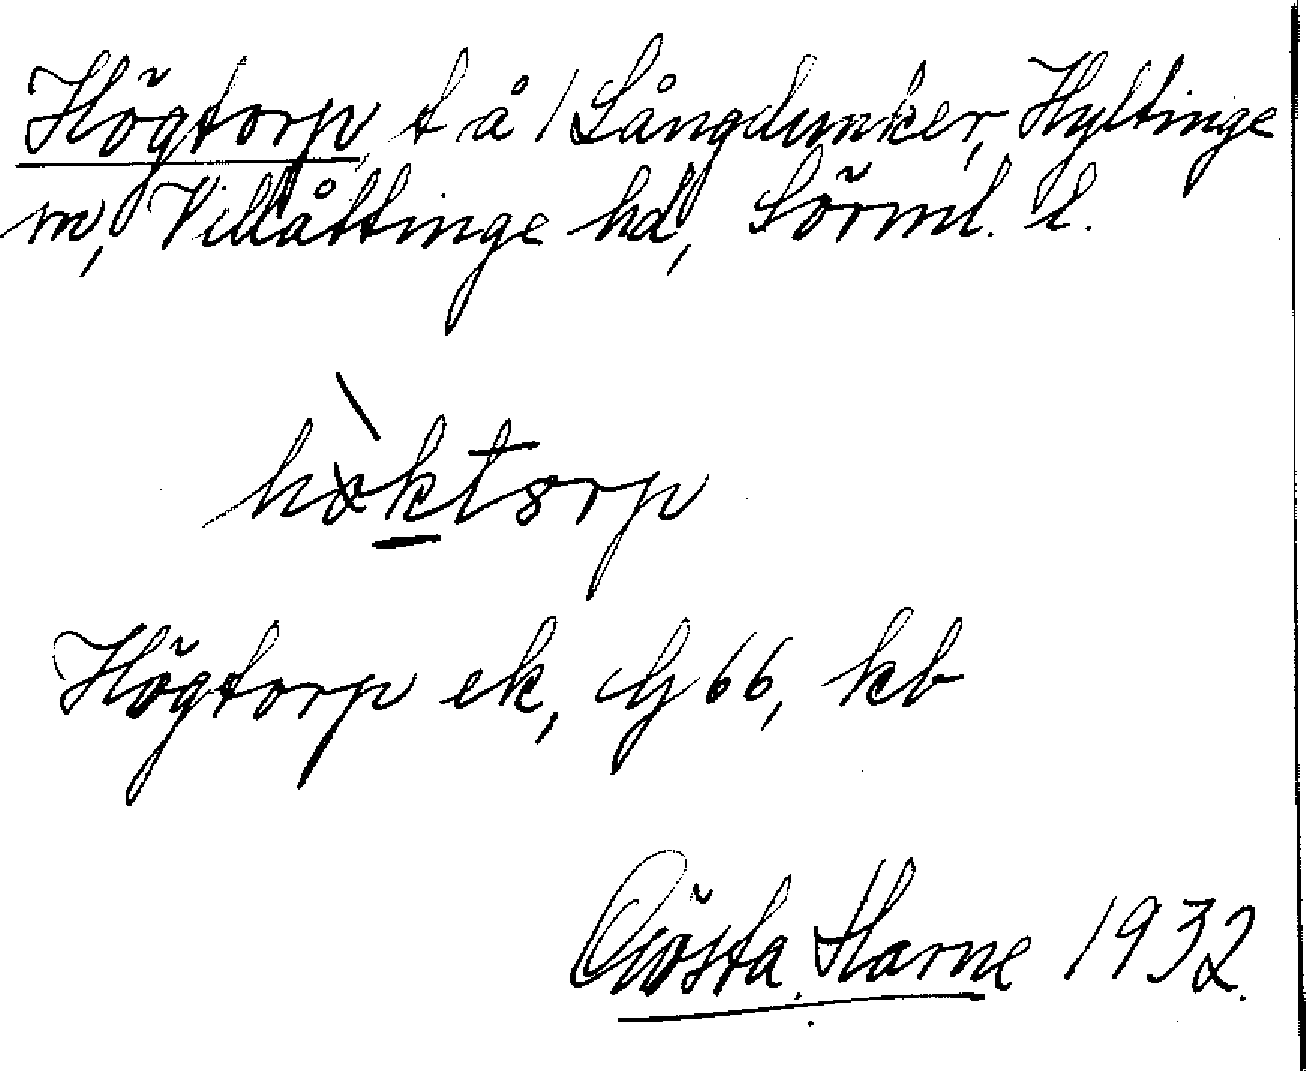 Högtorp, t å 1 Långdunker, Hyltinge
sn, Villåttinge hd, Sörml. l.
hὰktorp
Högtorp ek, Gg 66, kb
Gösta Harne 1932.